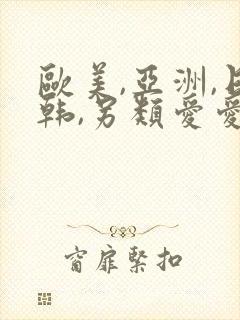 歐美,亞洲,日
韩,另類愛愛
窗扉緊扣